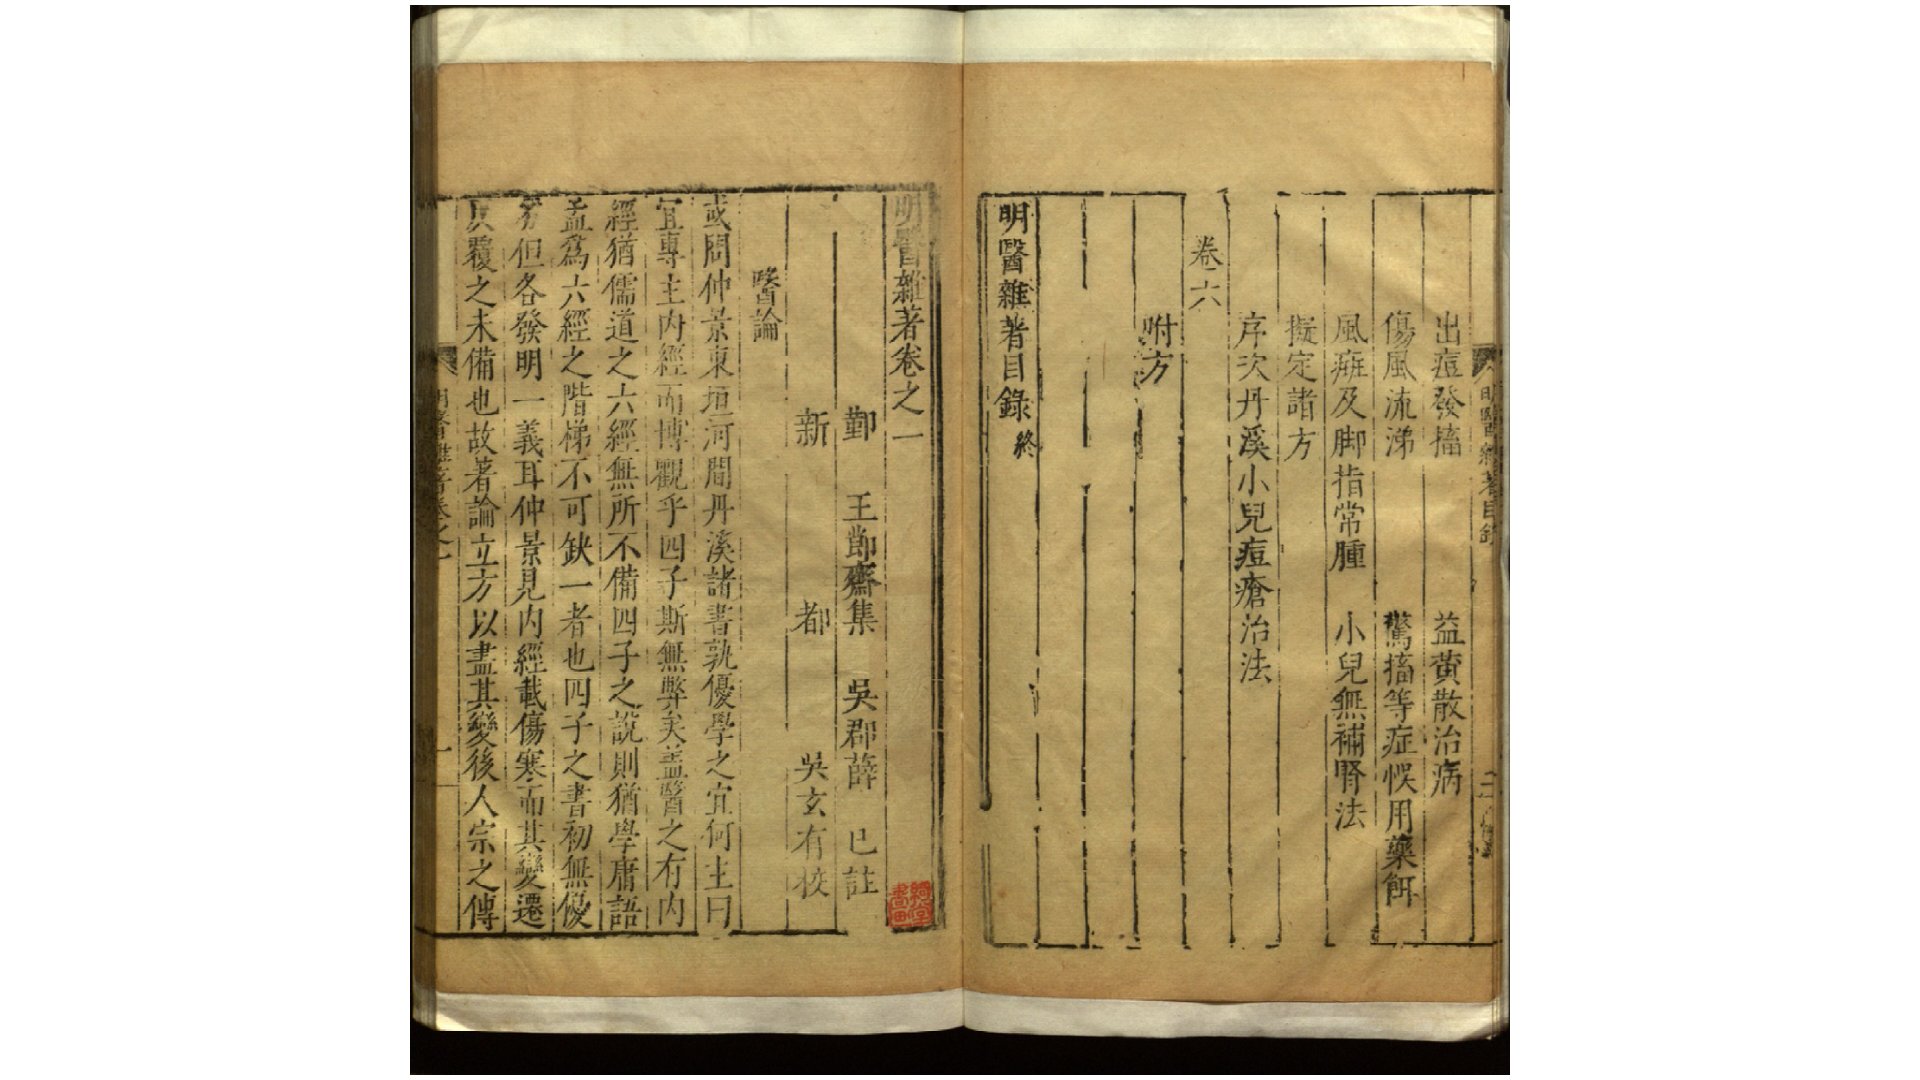 出痘發搐　益黃散治病
傷風流涕　驚搐等症悞用藥餌
風癱及脚指常腫　小兒無補腎法
擬定諸方
序次丹溪小兒痘瘡治法
卷六
咐方
明醫雜著目錄終
明醫雜著卷之一
鄞　王節齋集　吳郡薛　已註
新　都　吳玄有校
醫論
或問仲景東垣河間丹溪諸書孰優學之宜何主曰
宜專主內經而博觀乎四子斯無弊矣蓋醫之有內
經猶儒道之六經無所不備四子之說則猶學庸語
孟爲六經之階梯不可缺一者也四子之書初無優
劣但各發明一義耳仲景見內經載傷寒而其變遷
反覆之未備也故著論立方以盡其變後人宗之傳
明醫雜著卷之一
一